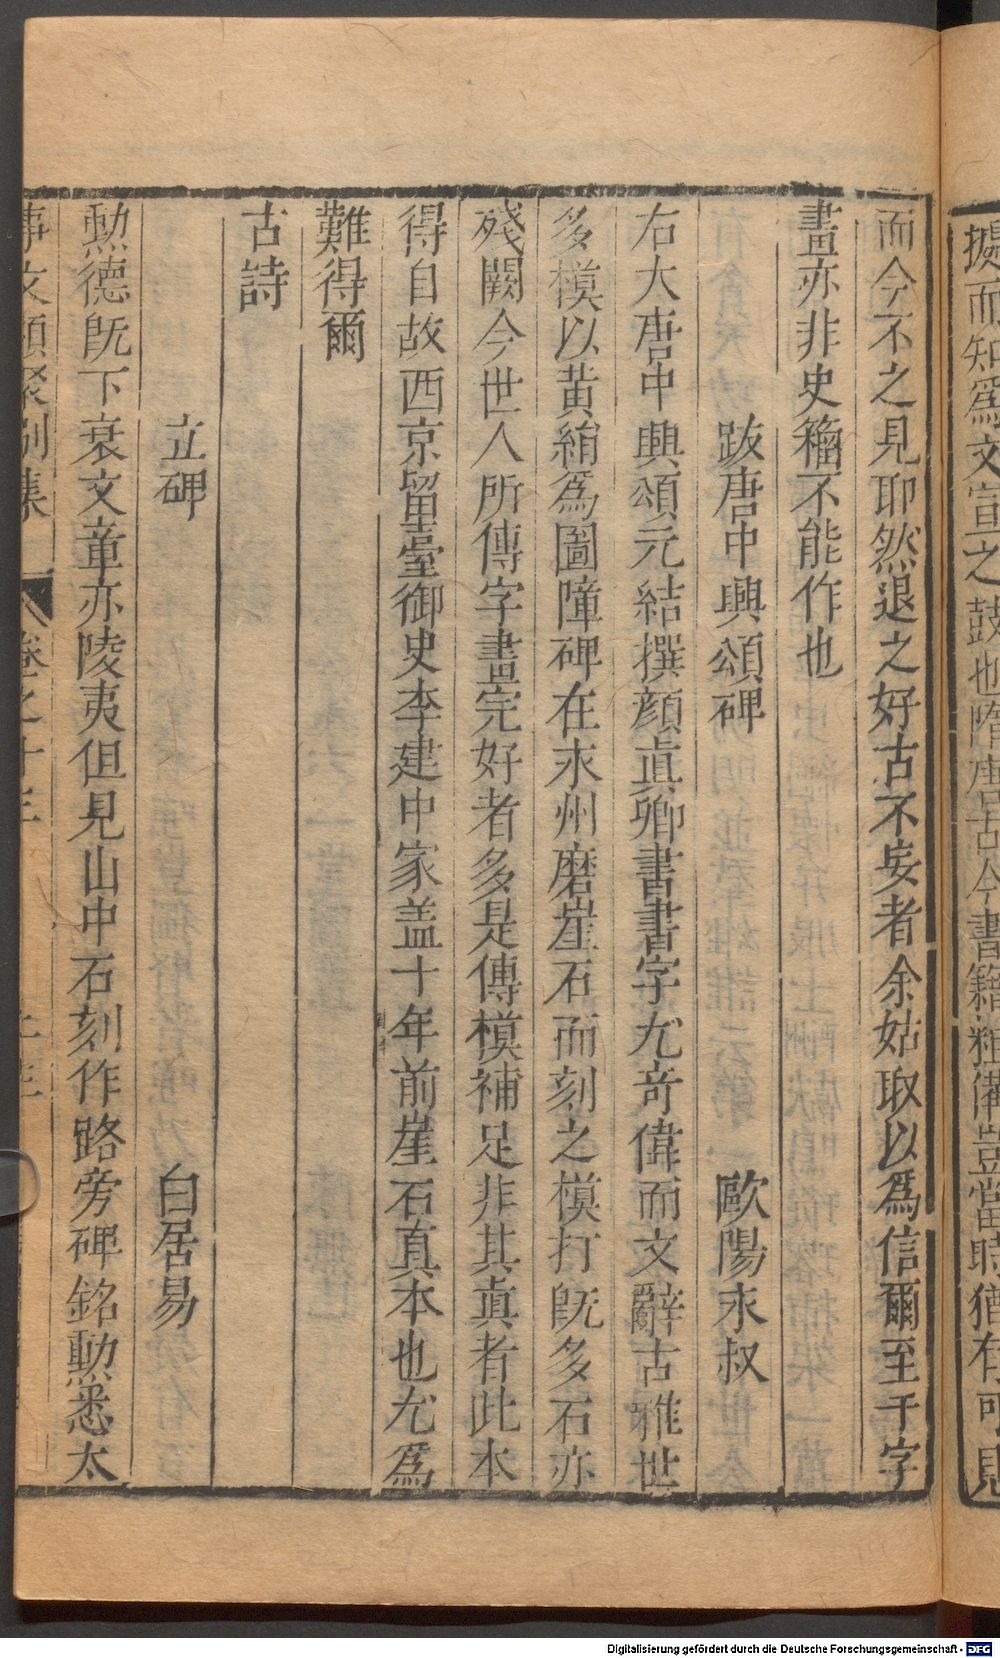 據而知爲文宣之鼓也隋唐古今書籍粗備豈當時猶有可見
而今不之見耶然退之好古不妄者余姑取以爲信爾至于字
畫亦非史籀不能作也
跋唐中興頌碑 歐陽永叔
右大唐中興頌元結撰顔真卿書書字尤竒偉而文辭古雅世
多模以黄絹爲圖障碑在永州磨崖石而刻之模打旣多石亦
殘闕今世人所傳字畫完好者多是傳模補足非其真者此本
得自故西京留臺御史李建中家盖十年前崖石真本也尤爲
難得爾
古詩
立碑 白居易
勲德旣下衰文章亦陵夷但見山中石刻作路旁碑銘勲悉太
事文類聚別集 卷之十三
Digitalisierung gefördert durch die Deutsche Forschungsgemeinschaft - DFG